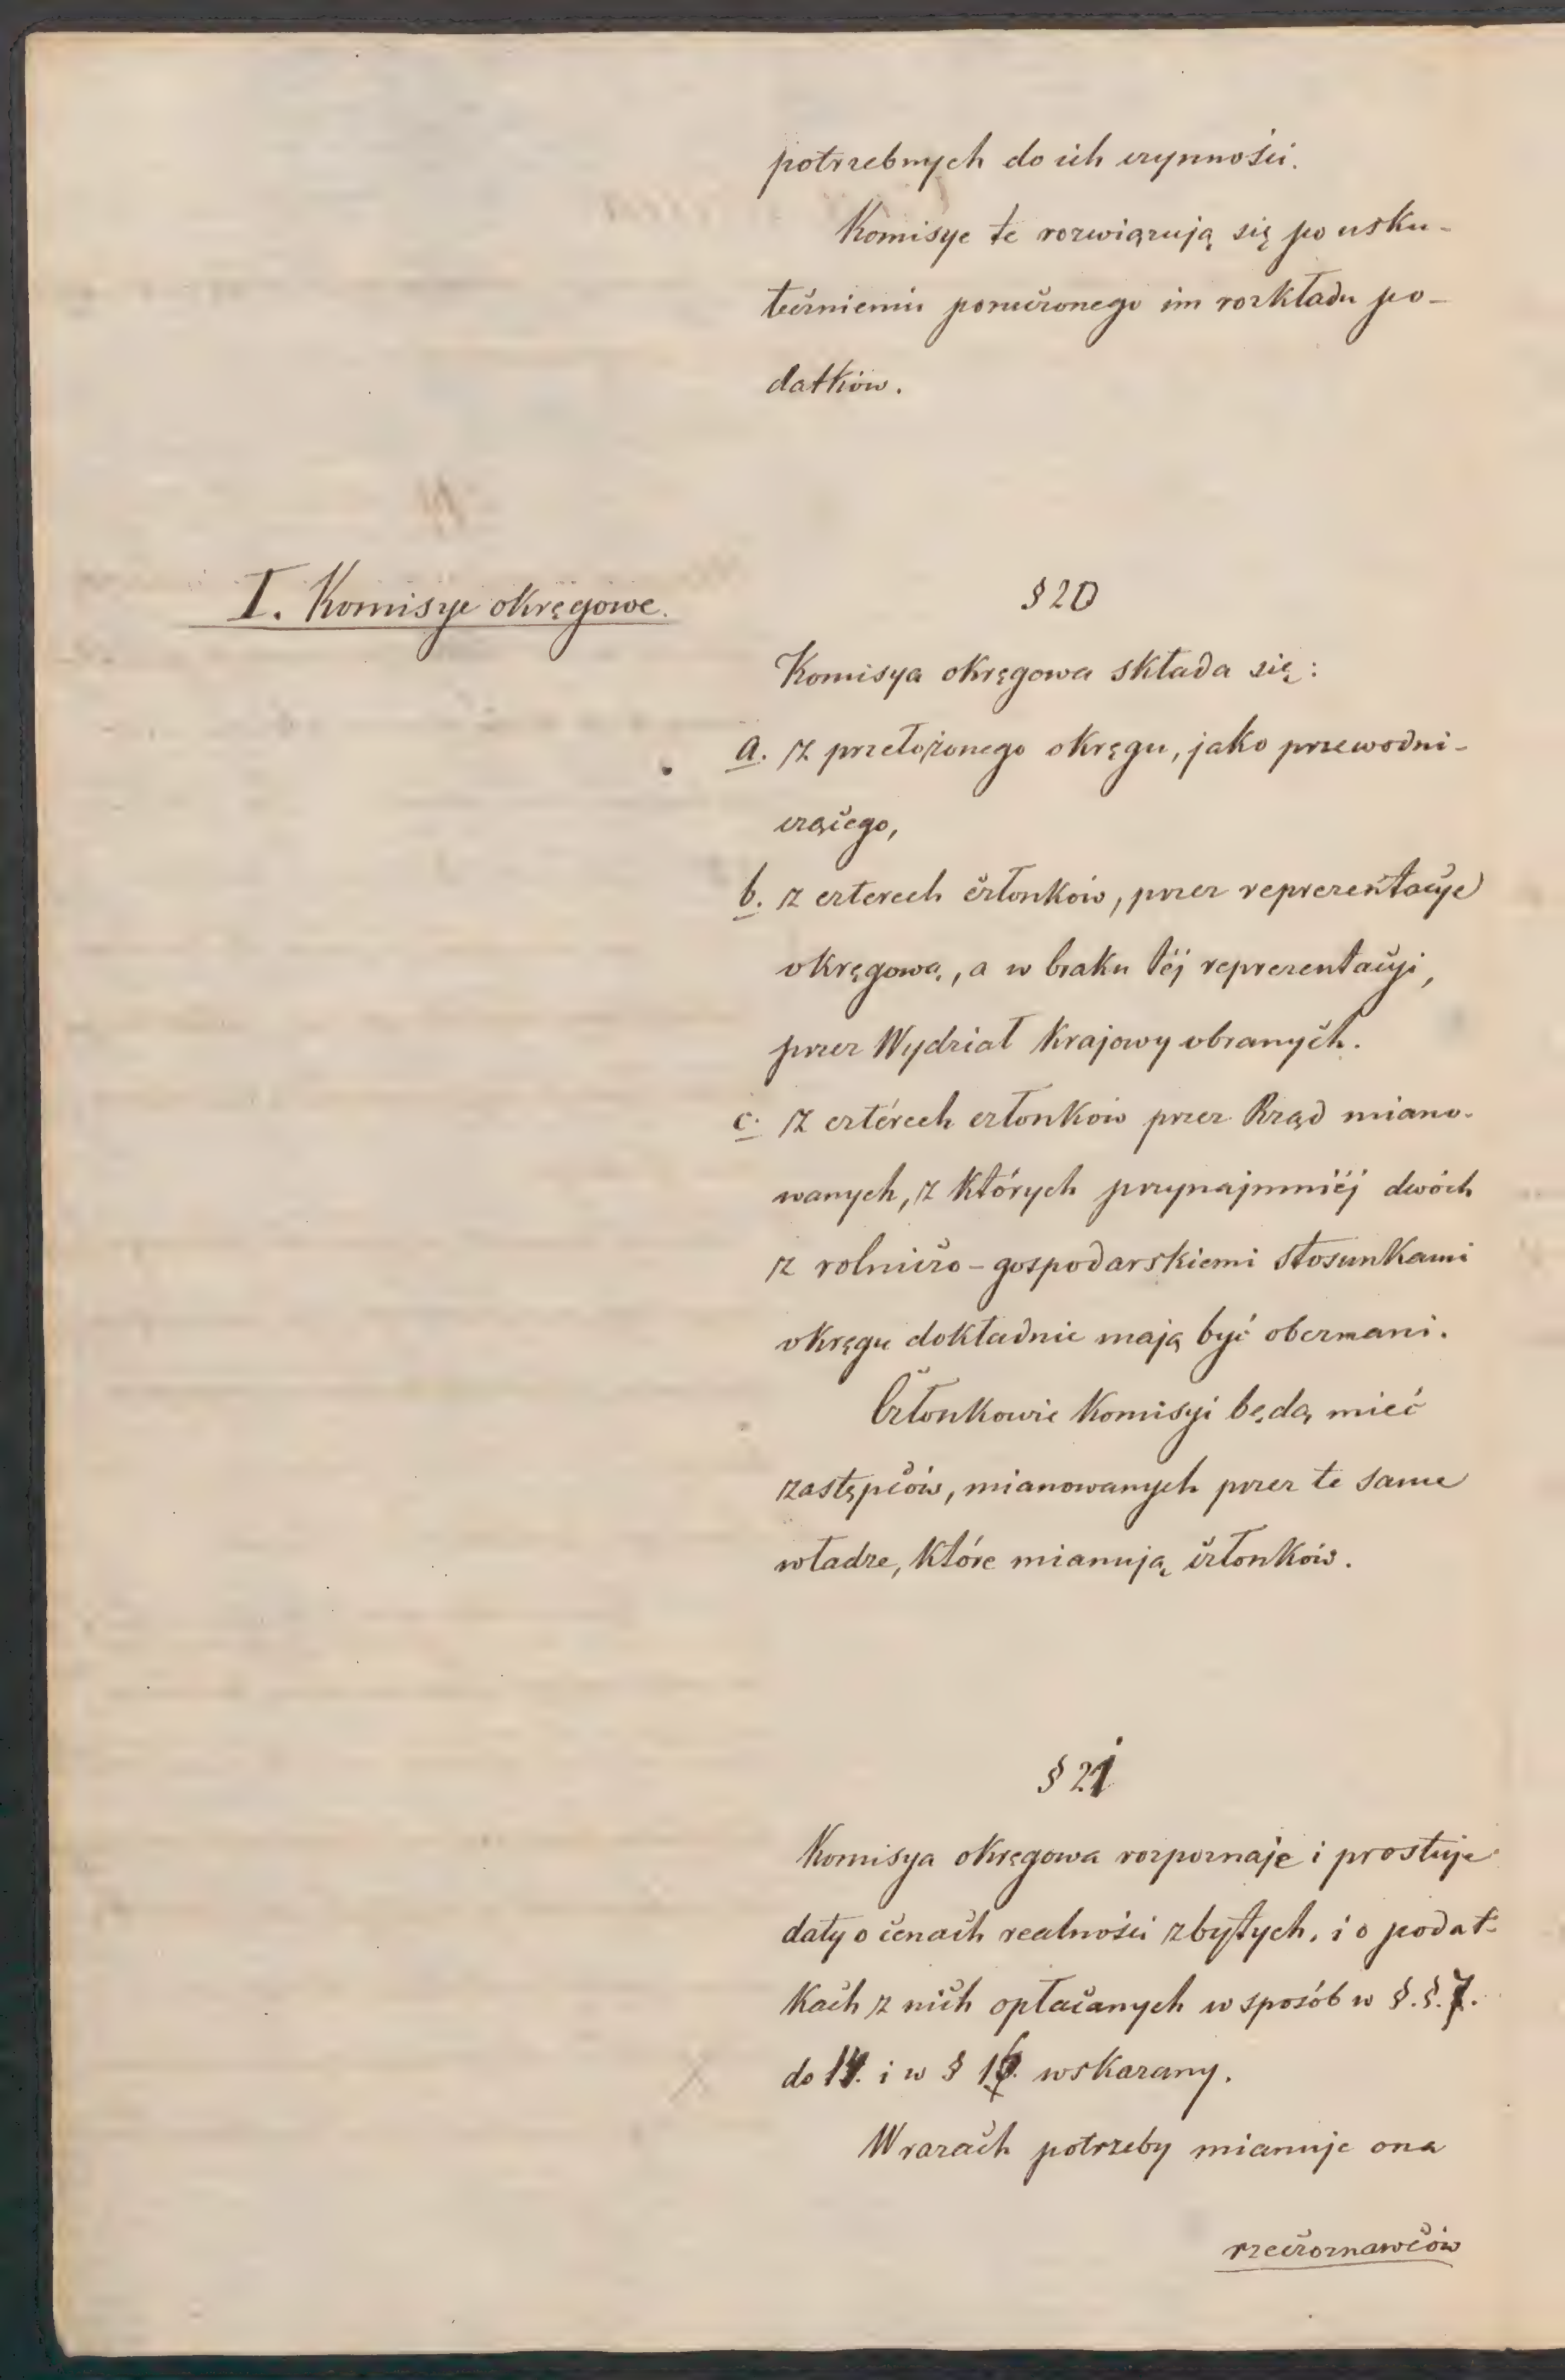 potrzebnych do ich czynności.
Komisye te rozwiązują się po usku-
tecznieniu poruczonego im rozkładu po-
datków.
I. Komisye okręgowe.
§ 20
Komisya okręgowa składa się:
a. z przełożonego okręgu, jako przewodni-
czącego,
b. z czterech członków, przez reprezentacye
okręgową, a w braku téj reprezentacyi,
przez Wydział Krajowy obranych.
c. z cztérech członków przez Rząd miano-
wanych, z których przynajmniéj dwóch
z rolniczo-gospodarskiemi stosunkami
okręgu dokładnie mają być obeznani.
Członkowie Komisyi będą mieć
zastępców, mianowanych przez te same
władze, które mianują członków.
§ 21
Komisya okręgowa rozpoznaje i prostuje
daty o cenach realności zbytych, i o podat-
kach z nich opłacanych w sposób w §.§. 7.
do 14. i w § 16. wskazany.
W razach potrzeby mianuje ona
rzeczoznawców